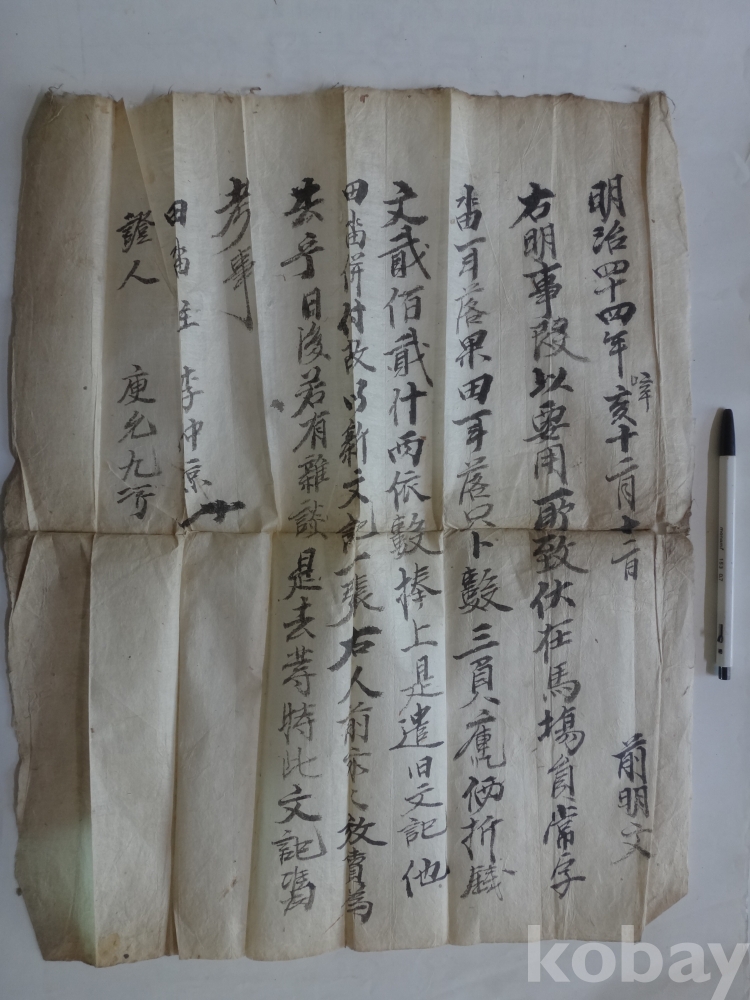 明治四十四年辛亥十二月十二日
前明文
右明事段以要用所致伏在馬塲員常字
畓一斗落果田一斗落只卜數三負庫価折錢
文貳佰貳什両依數捧上是遣旧文記他
田畓併付故以新文記一張右人前永永放賣爲
去乎日後若有雜談是去等特此文記憑
考事
田畓主 李仲京
證人 庾允九
kobay